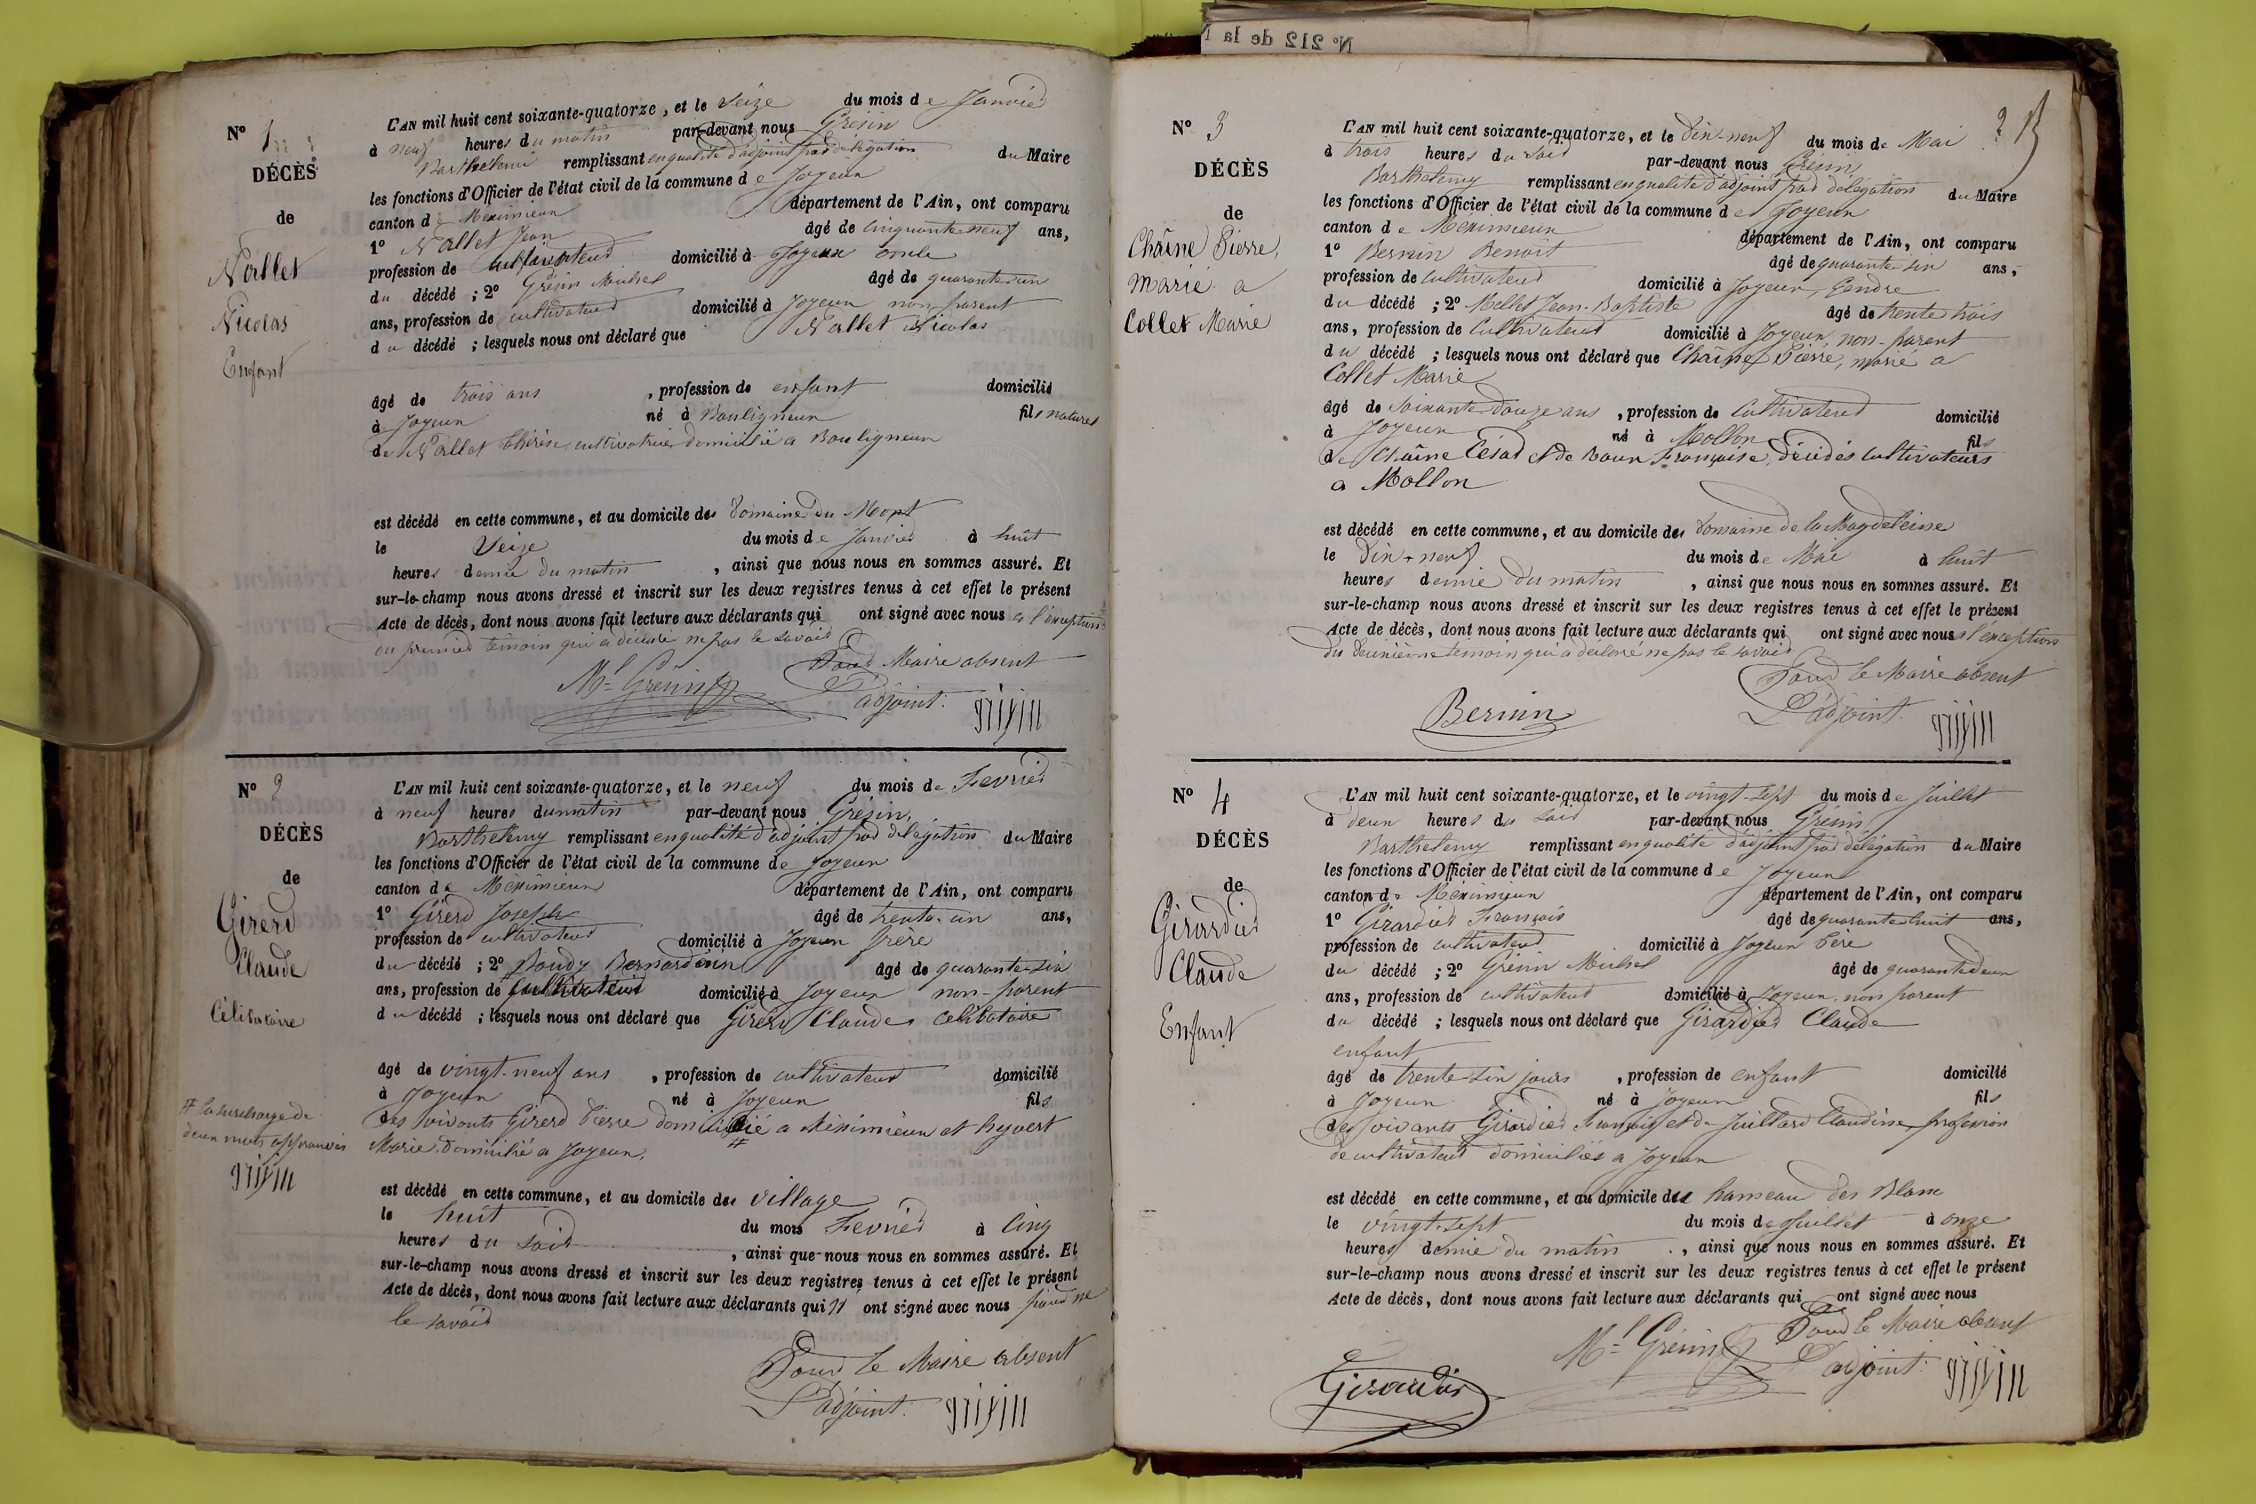 N° 212 de la
N° 1
DÉCÈS
de
Nallet
Nicolas
Enfant
L'AN mil huit cent soixante-quatorze, et le seize du mois de Janvier
à neuf heures du matin par-devant nous Grésin
Barthelemi remplissant en qualité d'adjoint par délégation du Maire
les fonctions d'Officier de l'état civil de la commune de Joyeux
canton de Meximieux département de l'Ain, ont comparu
1° Nallet Jean âgé de cinquante-neuf ans,
profession de cultivateur domicilié à Joyeux oncle
du décédé ; 2° Grésin Michel âgé de quarante-un
ans, profession de cultivateur domicilié à Joyeux non-parent
du décédé ; lesquels nous ont déclaré que Nallet Nicolas
âgé de trois ans , profession de enfant domicilié
à Joyeux né à Bouligneux fils naturel
de Nallet Thérèse, cultivatrice domicilié a Bouligneux
est décédé en cette commune, et au domicile des Domaine du Mont
le Seize du mois de Janvier à huit
heures demie du matin , ainsi que nous nous en sommes assuré. Et
sur-le-champ nous avons dressé et inscrit sur les deux registres tenus à cet effet le présent
Acte de décès, dont nous avons fait lecture aux déclarants qui ont signé avec nous a l'exception
du premier témoin qui a déclaré ne pas le savoir
Pour Maire absent
Ml Grésin L'adjoint. grisin
N° 2
DÉCÈS
de
Girerd
Claude
Célibataire
# la surcharge de
deux mots approuvés
grisin
L'AN mil huit cent soixante-quatorze, et le neuf du mois de Fevrier
à neuf heures du matin par-devant nous Grésin,
Barthelemy remplissant en qualité d'adjoint par délégation du Maire
les fonctions d'Officier de l'état civil de la commune de Joyeux
canton de Méximieux département de l'Ain, ont comparu
1° Girerd Joseph âgé de trente-un ans,
profession de cultivateur domicilié à Joyeux frère
du décédé ; 2° Boudy Bernardin âgé de quarante-six
ans, profession de cultivateur domicilié à Joyeux non-parent
du décédé ; lesquels nous ont déclaré que Girerd Claude célibataire
âgé de vingt-neuf ans , profession de cultivateur domicilié
à Joyeux né à Joyeux fils
des vivants Girerd Pierre domicilié a Méximieux et hyvert
# Marie, domicilié a Joyeux.
est décédé en cette commune, et au domicile des village
le huit du mois Fevrier à cinq
heures du soir , ainsi que nous nous en sommes assuré. Et
sur-le-champ nous avons dressé et inscrit sur les deux registres tenus à cet effet le présent
Acte de décès, dont nous avons fait lecture aux déclarants qui n' ont signé avec nous pour ne
le savoir
Pour le Maire absent
L'adjoint. grisin
N° 3
DÉCÈS
de
Chaîne Pierre,
marié a
Collet Marie
L'AN mil huit cent soixante-quatorze, et le Dix-neuf du mois de Mai
à trois heures du soir par-devant nous Grésin,
Barthelemy remplissant en qualité d'adjoint par délégation du Maire
les fonctions d'Officier de l'état civil de la commune de Joyeux
canton de Méximieux département de l'Ain, ont comparu
1° Bernin Benoit âgé de quarante-six ans,
profession de cultivateur domicilié à Joyeux, Gendre
du décédé ; 2° Mollet Jean-Baptiste âgé de trente trois
ans, profession de Cultivateur domicilié à Joyeux, non-parent
du décédé ; lesquels nous ont déclaré que Chaîne Pierre, marié a
Collet Marie
âgé de soixante-douze ans , profession de Cultivateur domicilié
à Joyeux né à Mollon fils
de Chaîne César et de Françoise, décédés cultivateurs
a Mollon
est décédé en cette commune, et au domicile des Domaine de la Magdeleine
le Dix-neuf du mois de Mai à huit
heures demie du matin , ainsi que nous nous en sommes assuré. Et
sur-le-champ nous avons dressé et inscrit sur les deux registres tenus à cet effet le présent
Acte de décès, dont nous avons fait lecture aux déclarants qui ont signé avec nous a l'exception
du deuxième témoin qui a declaré ne pas le savoir
Pour le Maire absent
Bernin L'adjoint. grisin
N° 4
DÉCÈS
de
Girardier
Claude
Enfant
L'AN mil huit cent soixante-quatorze, et le vingt-sept du mois de Juillet
à deux heures du soir par-devant nous Grésin
Barthelemy remplissant en qualité d'adjoint par délégation du Maire
les fonctions d'Officier de l'état civil de la commune de Joyeux
canton de Méximieux département de l'Ain, ont comparu
1° Girardier François âgé de quarante-huit ans,
profession de cultivateur domicilié à Joyeux Père
du décédé ; 2° Grésin Michel âgé de quarante deux
ans, profession de cultivateur domicilié à Joyeux, non parent
du décédé ; lesquels nous ont déclaré que Girardier Claude
enfant
âgé de trente-six jours , profession de enfant domicilié
à Joyeux né à Joyeux fils
des vivants Girardier François et de Juillard Claudine profession
de cultivateur domiciliés a Joyeux
est décédé en cette commune, et au domicile des hameau des Blanc
le vingt-sept du mois de Juillet à onze
heures demie du matin , ainsi que nous nous en sommes assuré. Et
sur-le-champ nous avons dressé et inscrit sur les deux registres tenus à cet effet le présent
Acte de décès, dont nous avons fait lecture aux déclarants qui ont signé avec nous
Pour le Maire absent
Girardier Ml Grésin L'adjoint. grisin